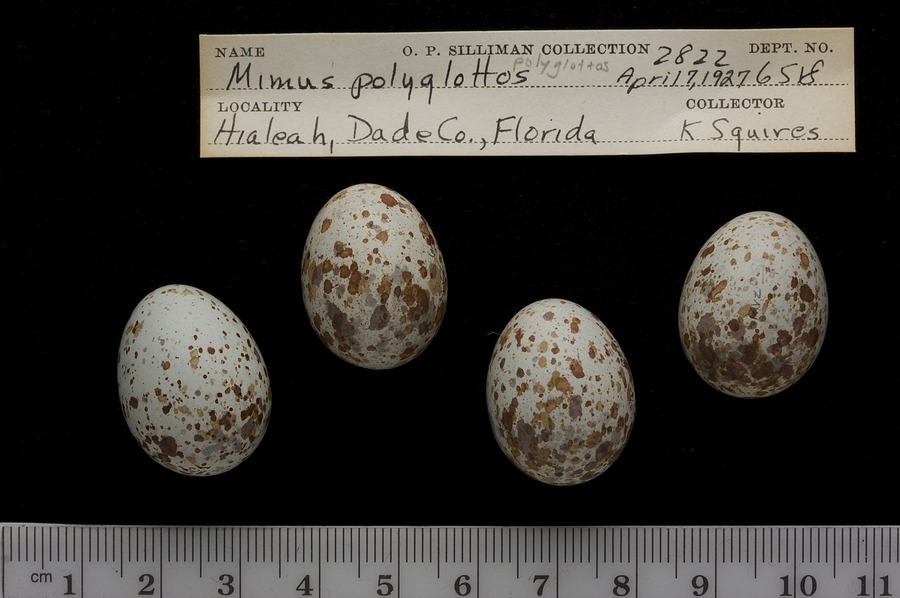 NAME O. P. SILLIMAN COLLECTION 2822 DEPT. NO.
Mimus polyglottos polyglottos April 17, 1927
LOCALITY COLLECTOR
Hialeah, Dade Co., Florida K Squires
cm 1 2 3 4 5 6 7 8 9 10 11